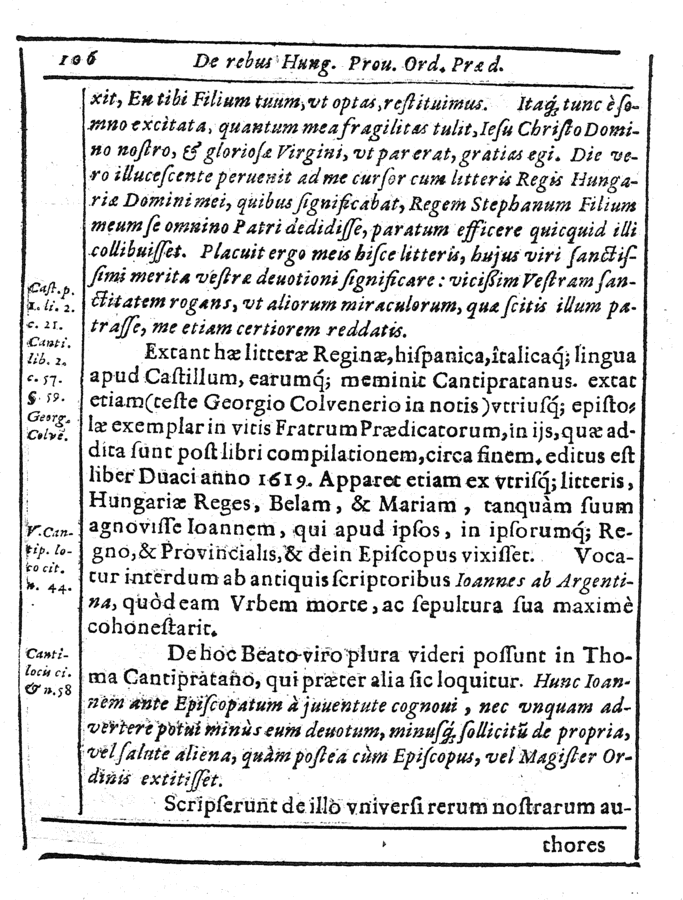 106 De rebus Hung. Prou. Ord. Præd.
xit, En tibi Filium tuum, vt optas, reſtituimus. Itaq́; tunc è ſo-
mno excitata, quantum mea fragilitas tulit, Ieſu Chriſto Domi-
no noſtro, & glorioſæ Virgini, vt par erat, gratias egi. Die ve-
ro illuceſcente peruenit ad me curſor cum litteris Regis Hunga-
riæ Domini mei, quibus ſignificabat, Regem Stephanum Filium
meum ſe omnino Patri dedidiſſe, paratum efficere quicquid illi
collibuiſſet. Placuit ergo meis hiſce litteris, hujus viri ſanctiſ-
ſimi merita veſtræ deuotioni ſignificare: viciſſim Veſtram ſan-
ctitatem rogans, vt aliorum miraculorum, quæ ſcitis illum pa-
traſſe, me etiam certiorem reddatis.
Extant hæ litteræ Reginæ, hiſpanica, îtalicaq́; lingua
apud Caſtillum, earumq́; meminit Cantipratanus. extat
etiam (teſte Georgio Colvenerio in notis) vtriuſq́; epiſto-
læ exemplar in vitis Fratrum Prædicatorum, in ijs, quæ ad-
dita ſunt poſt libri compilationem, circa finem. editus eſt
liber Duaci anno 1619. Apparet etiam ex vtriſq́; litteris,
Hungariæ Reges, Belam, & Mariam, tanquàm ſuum
agnoviſſe Ioannem, qui apud ipſos, in ipſorumq́; Re-
gno, & Provincialis, & dein Epiſcopus vixiſſet. Voca-
tur interdum ab antiquis ſcriptoribus Ioannes ab Argenti-
na, quòd eam Vrbem morte, ac ſepultura ſua maximè
cohoneſtarit.
De hoc Beato viro plura videri poſſunt in Tho-
ma Cantipratano, qui præter alia ſic loquitur. Hunc Ioan-
nem ante Epiſcopatum à juuentute cognoui, nec vnquam ad-
vertere potui minùs eum deuotum, minuſq́; ſollicitũ de propria,
vel ſalute aliena, quàm poſtea cùm Epiſcopus, vel Magiſter Or-
dinis extitiſſet.
Scripſerunt de illo vniverſi rerum noſtrarum au-
thores
Caſt. p.
1. li. 2.
c. 21.
Canti.
lib. 2.
c. 57.
§. 59.
Georg.
Colvē.
V. Can-
tip. lo-
co cit.
n. 44.
Canti-
locū ci.
& n. 58